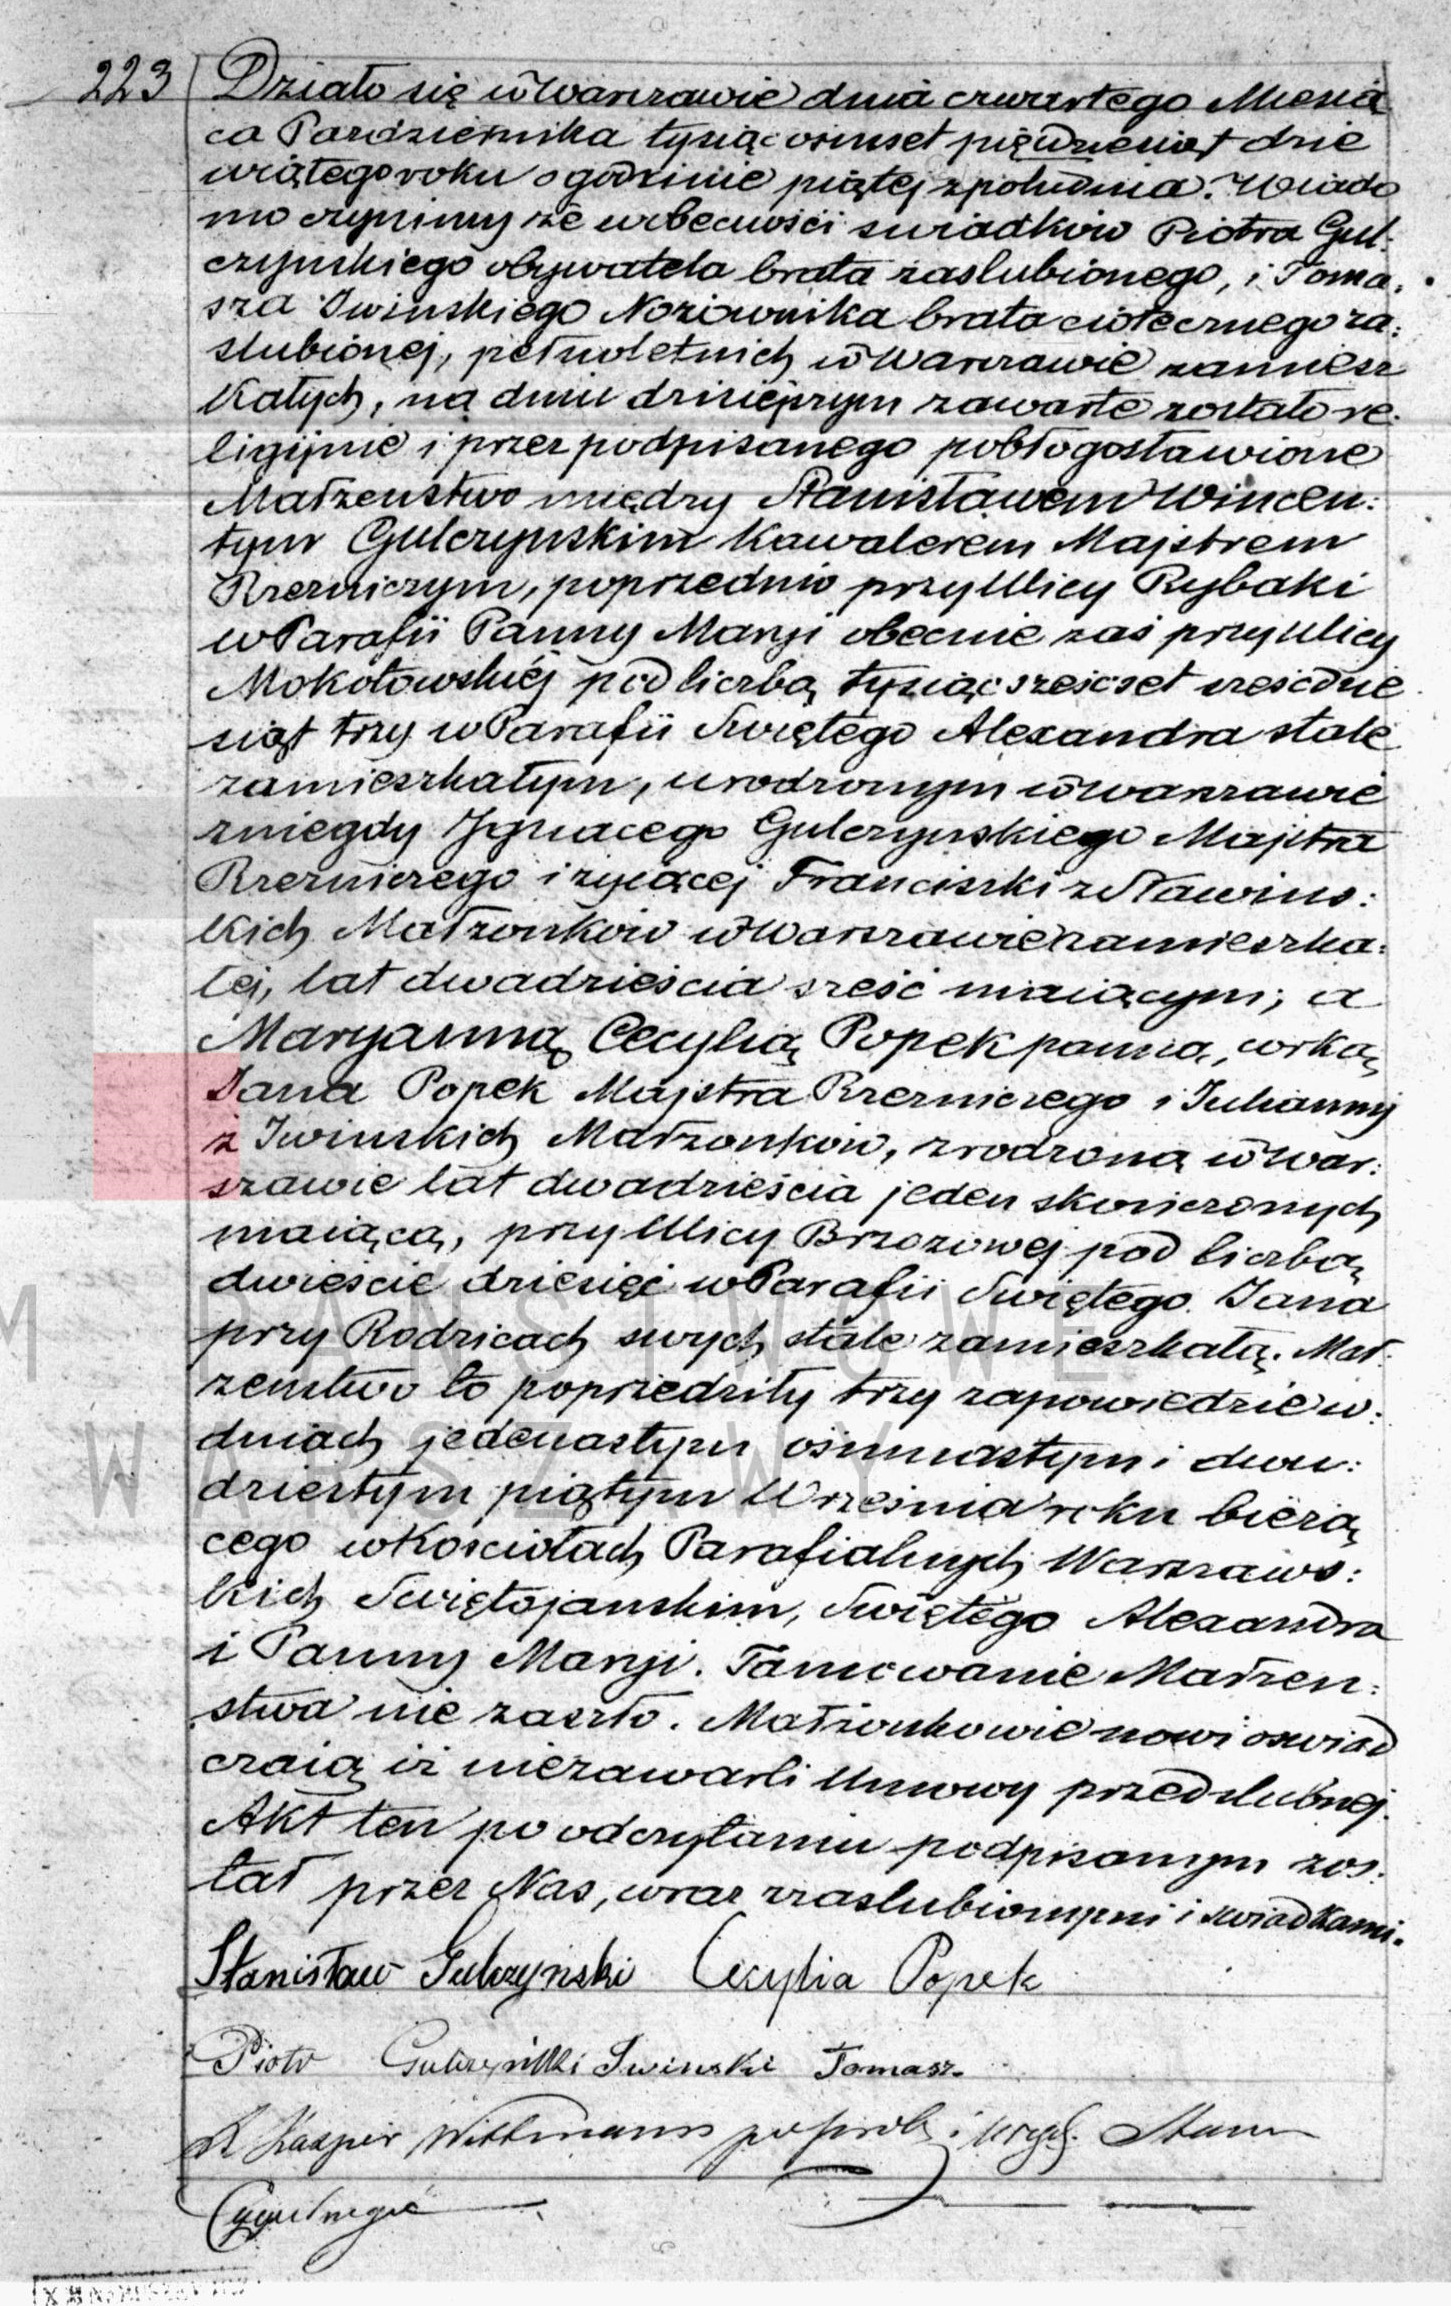 223 Działo się w Warszawie dnia czwartego Miesią
ca Pazdziernika tysiąc osmset pięwdziesiąt dzie
wiątego roku o godzinie piątej z południa. Wiado
mo czynimy że w obecności swiadków Piotra Gul:
czynskiego obywatela brata zaslubionego, i Toma,
sza Iwinskiego Nożownika brata ciotecznego za:
slubionej, pełnoletnich w Warszawie zamiesz
kałych, na dniu dzisiejszym zawarte zostało re:
ligijnie i przez podpisanego pobłogosławione
Małżenstwo między Stanisławem Wincen:
tym Gulczynskim Kawalerem Majstrem
Rzezniczym, poprzednio przy Ulicy Rybaki
w Parafii Panny Maryi obecnie zaś przy Ulicy
Mokotowskiéj pod liczbą tysiąc szescset szescdzie
siąt trzy w Parafii Swiętego Alexandra stale
zamieszkałym, urodzonym w Warszawie
z niegdy Ignacego Gulczynskiego Majstra
Rzezniczego i zyiącej Franciszki z Sławins:
kich Małżonków w Warszawie zamieszka:
łej, lat dwadzieścia sześć maiącym; a
Maryanną Cecylią Popek panną, corką
Jana Popek Majstra Rzezniczego i Julianny
z Iwinskich Małżonków, zrodzoną w War:
szawie lat dwadzieścia jeden skończonych
maiącą, przy Ulicy Brzozowej pod liczbą
dwieście dziesięć w Parafii Swiętego Jana
przy Rodzicach swych stale zamieszkałą. Mał:
żenstwo to poprzedziły trzy zapowiedzie w:
dniach jedenastym ośmnastym i dwu:
dziestym piątym Września roku bieżą
cego w Kosciołach Parafialnych Warszaws:
kich Swiętojanskim, Swiętego Alexandra
i Panny Maryi. Tamowanie Małżen:
stwa nie zaszło. Małżonkowie nowi oswiad
czaią iż niezawarli Umowy przedslubnej.
Akt ten po odczytaniu podpisanym zos:
tał przez Nas, wraz z zaslubionymi i swiadkami.
Stanisław Gulczynski Cecylia Popek
Piotr Gulczynski Iwinski Tomasz.
X Kasper Wittmann
M PAŃSTWOWE
WARSZAWY